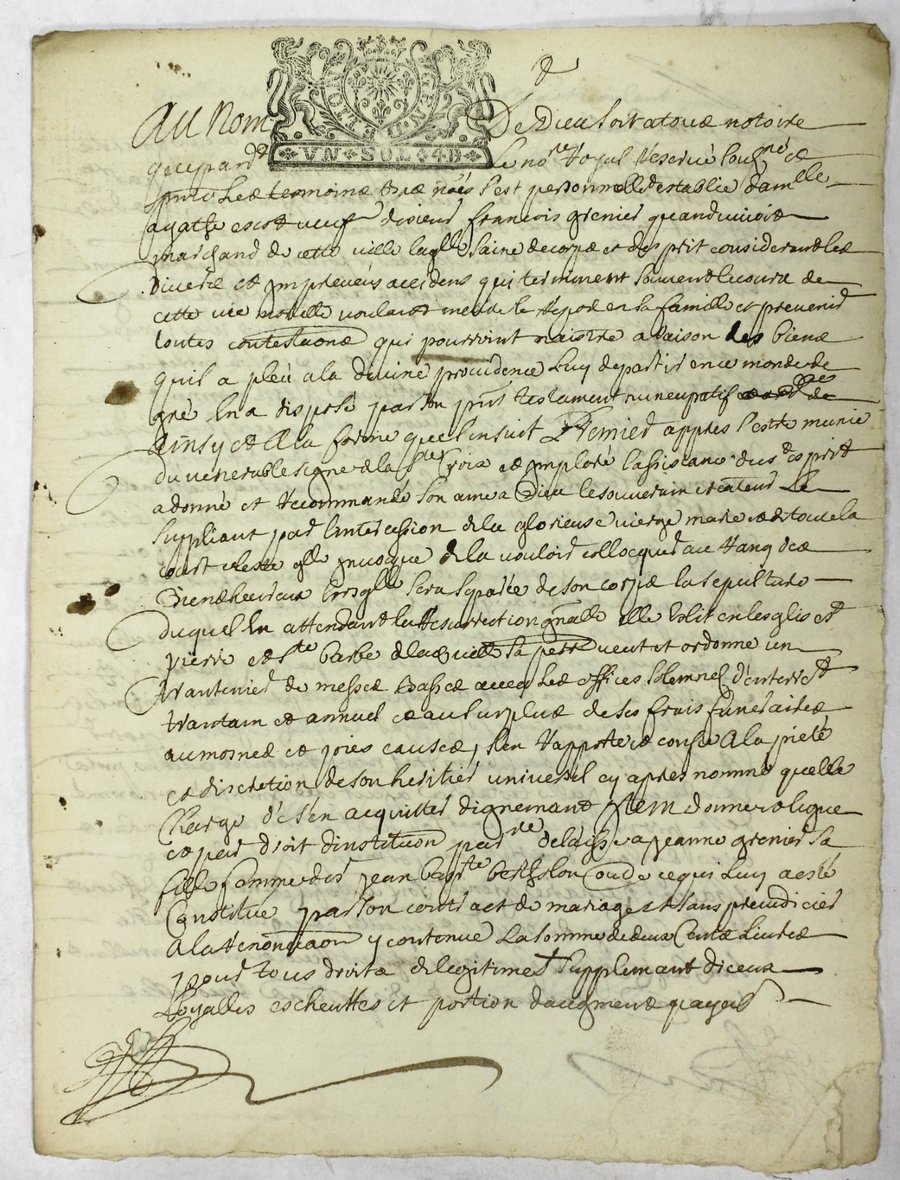 ET LIO GEND
VN · SOL · 4D
Au Nom De Dieu soit a tous notoire
que pard.t le no.re royal reservé soubs.né et
p.nts les tesmoins bas nés s'est personnell.t establie dam.lle
agathe escot veufve du sieur françois grenier quand vivoit
marchand de cette ville laq.lle saine de corps et d'esprit considerant les
divers et impreveus accidens qui terminent souvent le cours de
cette vie mortelle voulant mettre le repos en sa famille et prevenir
toutes contestaons qui pourroint naistre a raison des biens
quil a pleu a la divine providence luy departir en ce monde de
gré en a disposé par son p.nt testament nuncupatif
ainsy et a la forme que s'ensuit Premier appres s'estre munie
du venerable signe de la s.te Croix et imploré l'assistance du s.t esprit
a donné et recommandé son ame a Dieu le souverain createur Le
suppliant par l'intercession de la glorieuse vierge marie et de toute la
court celeste q.lle puisque de la vouloir collocquer au rang des
Bienheureux lorsq.lle sera separée de son corps la sepulture
duquel en attendant la resurrection g.nalle elle eslit en l'esglise s.t
pierre et s.te barbe de laquelle sa veut et ordonne un
trantenier de messes basses avec les offices solemnel d'enterre.t
trantain et annuel et au surplus de ses frais funeraires
aumosnes et pies causes, s'en rapporte et confie a la pieté
et discretion de son heritier universel cy apres nommé quelle
charge de s'en acquitter dignemant Item donne et legue
et par droit d'institution delaisse a jeanne grenier sa
fille famme du s.r jean bap.te berthelon outre ce qui luy a esté
Constitué par son contract de mariage et sans prejudicier
a la renontiaon y contenue La somme de deux Cents Livres
pour tous droits de legitime supplemant d'iceux
Loyalles escheuttes et portion d'augment payable